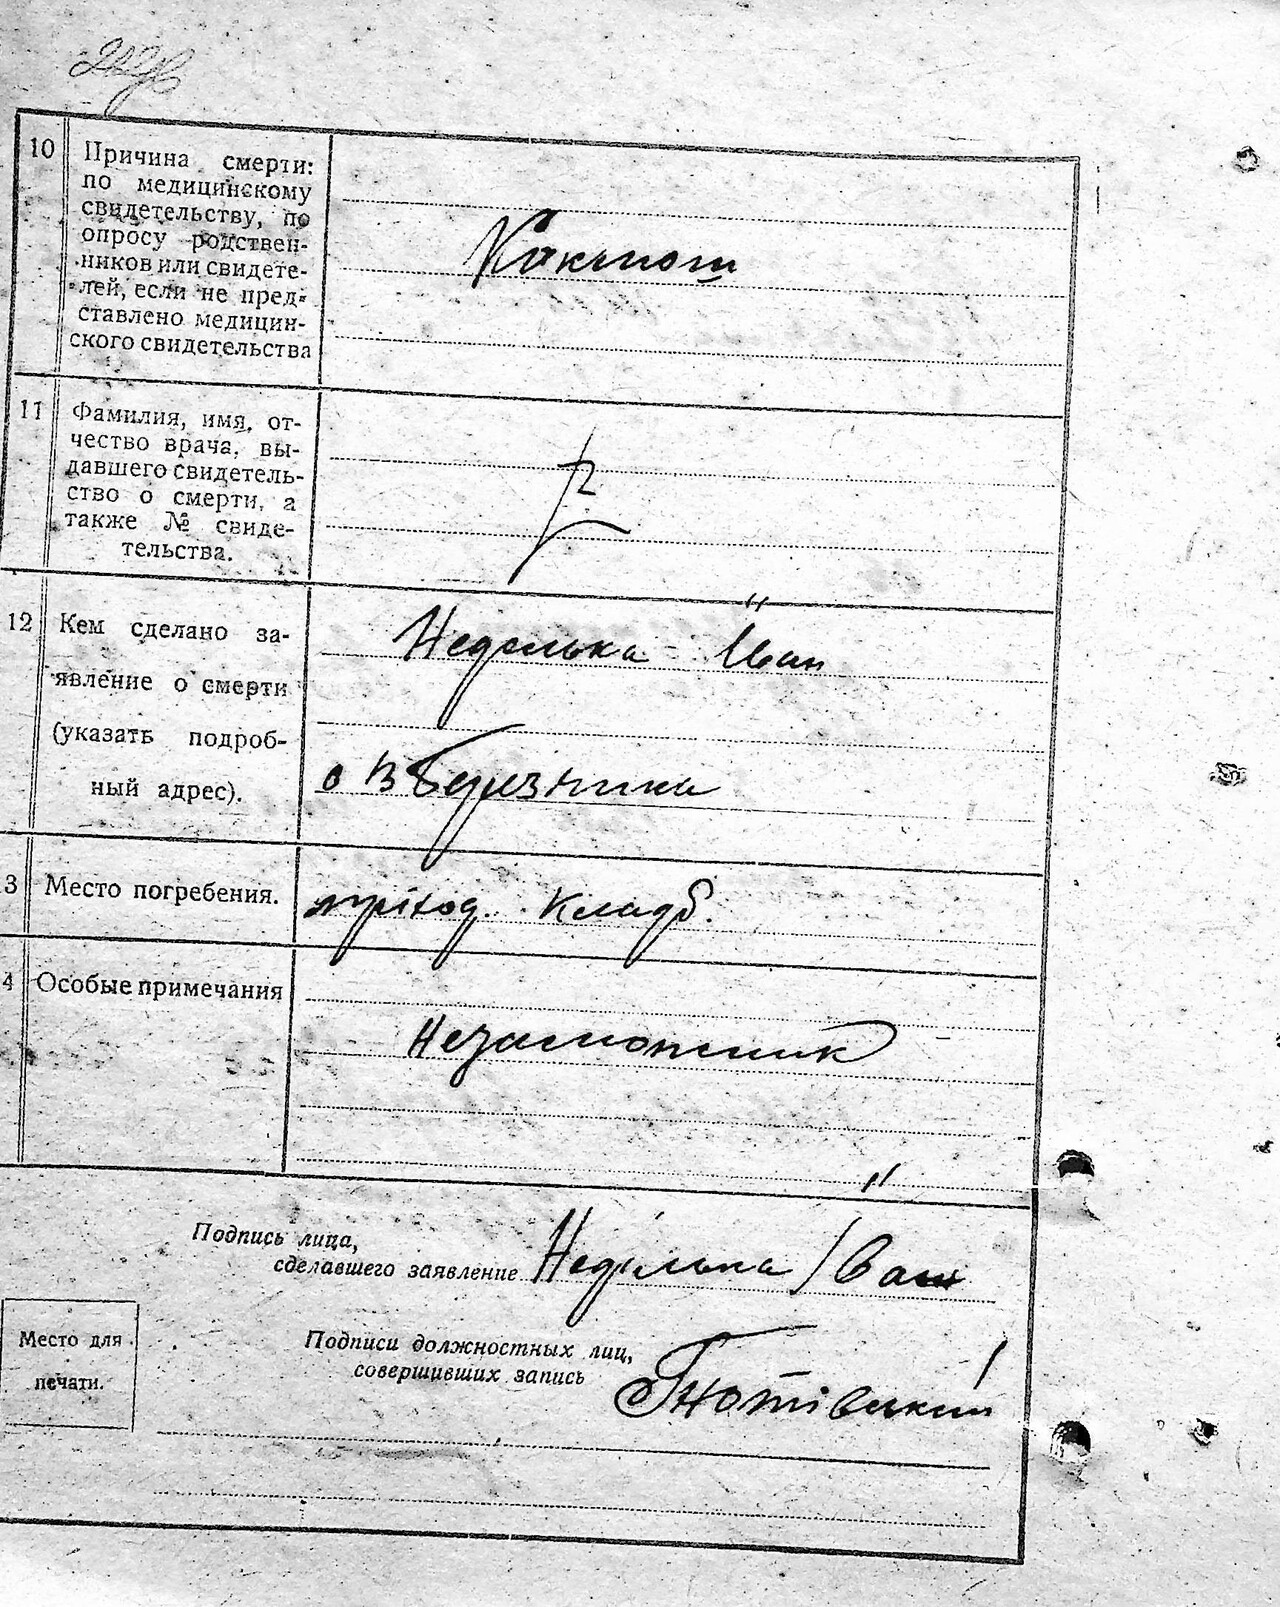 10
Причина смерти:
по медицинскому
свидетельству, по
опросу родствен-
ников или свидете-
лей, если не пред-
ставлено медицин-
ского свидетельства
Коклюш
11
Фамилия, имя, от-
чество врача, вы-
давшего свидетель-
ство о смерти, а
также № свиде-
тельства.
12
Кем сделано за-
явление о смерти
(указать подроб-
ный адрес).
Неділька Іван
с В Березянка
3
Место погребения.
пріход. Кладб.
4
Особые примечания
Незаможник
Подпись лица,
сделавшего заявление Неділька Іван
Место для
печати.
Подписи должностных лиц,
совершивших запись